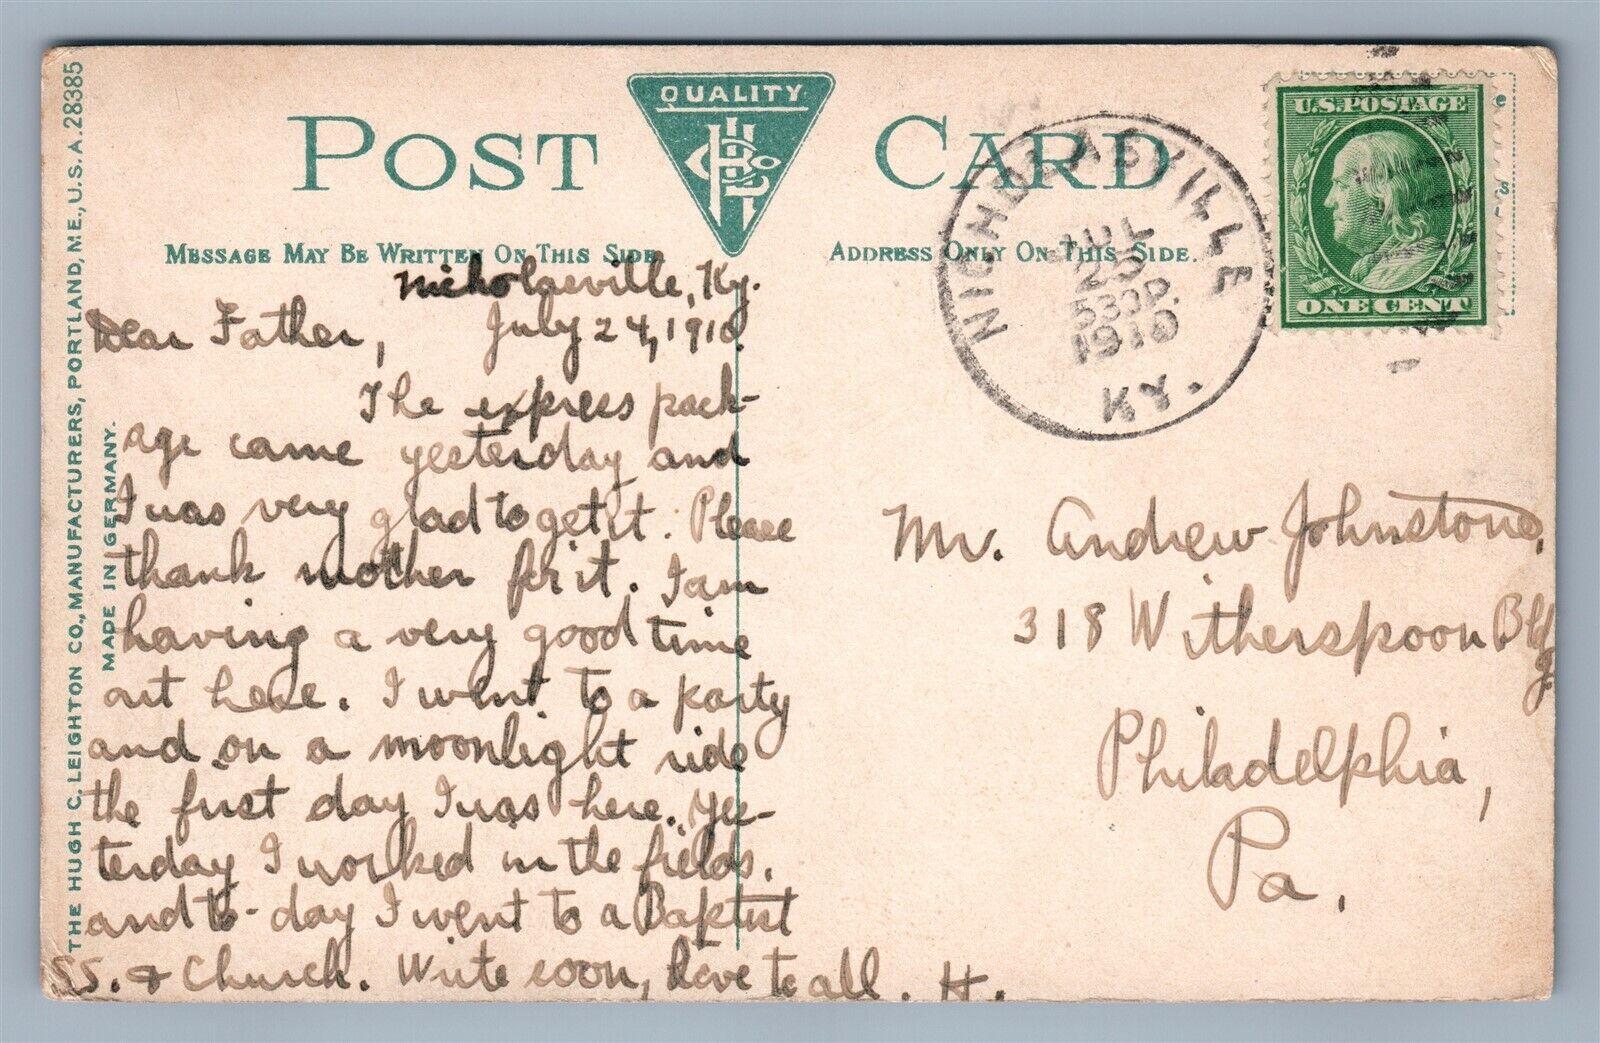 THE HUGH C. LEIGHTON CO., MANUFACTURERS, PORTLAND, ME., U.S.A. 28385
MADE IN GERMANY.
POST CARD
QUALITY
MESSAGE MAY BE WRITTEN ON THIS SIDE.
ADDRESS ONLY ON THIS SIDE.
NICHOLASVILLE
JUL
530P.
1910
KY.
U.S. POSTAGE
ONE CENT
Nicholasville, Ky.
July 24, 1910.
Dear Father,
The express pack-
age came yesterday and
I was very glad to get it. Please
thank mother for it. I am
having a very good time
out here. I went to a party
and on a moonlight ride
the first day I was here. Yes-
terday I worked in the fields.
and to-day I went to a Baptist
SS. & Church. Write soon, Love to all. H.
Mr. Andrew Johnstone,
318 Witherspoon Bldg.
Philadelphia,
Pa.